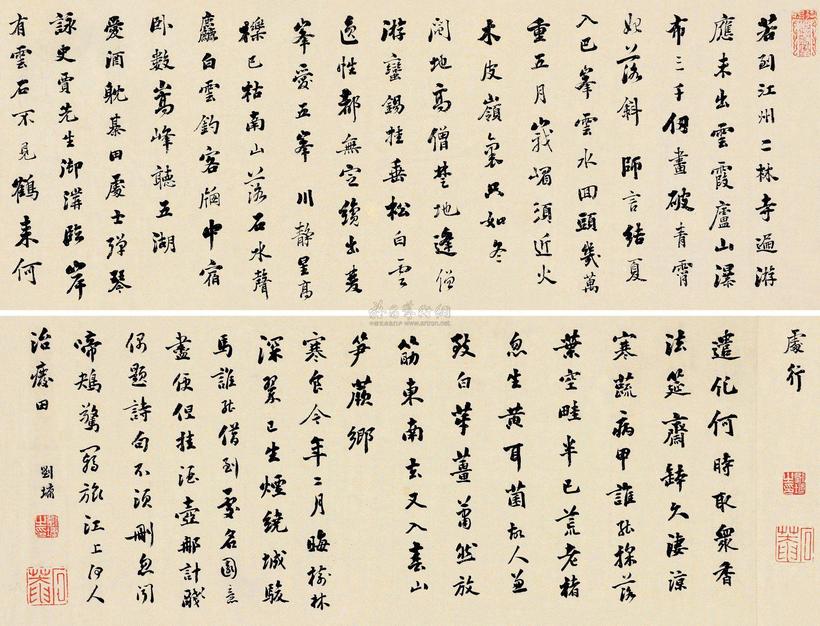 若到江州二林寺遍游
應未出雲霞廬山瀑
布三千仞畫破青霄
始落斜 師言結夏
入巴峯雲水回頭幾萬
重五月峩嵋須近火
木皮嶺裏只如冬
閬地高僧楚地逢僧
游蠻錫挂垂松白雲
逸性都無定纔出
峯愛五峯 川靜星高
櫟已枯南山落石水聲
麤白雲釣客窗中宿
卧數嵩峰聽五湖
愛酒耽棊田處士彈琴
詠史賈先生御溝臨岸
有雲石不見鶴來何
處行
遣化何時取衆香
法筵齋鉢久淒涼
寒蔬病甲誰能採落
葉空畦半已荒老楮
忽生黄耳菌故人兼
致白芽薑蕭然放
筯東南去又入春山
笋蕨鄉
寒食今年二月晦榆林
深翠已生煙繞城駿
馬誰能借到處名園意
盡便但挂酒壺那計醆
偶題詩句不須刪忽聞
啼鴂驚羈旅江上何人
治廢田
劉墉